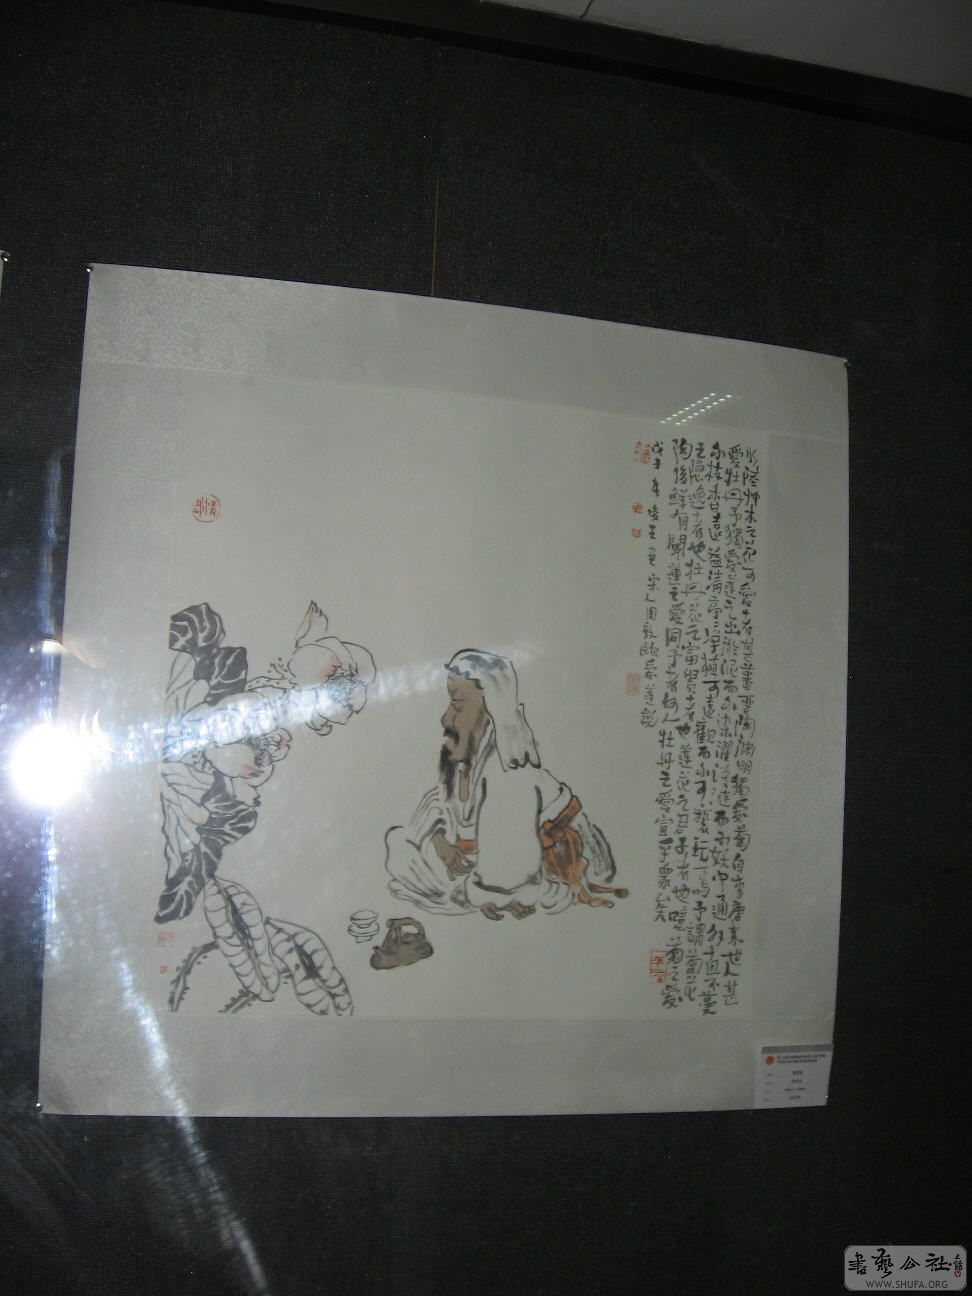 水陸艸木之花可愛者甚蕃晋陶渊明獨愛菊自李唐来世人甚
愛牡丹予獨愛蓮之出淤泥而不染濯清漣而不妖中通外直不蔓
不枝香遠益清亭亭淨植可遠觀而不可褻玩焉予謂菊花
之隱逸者也牡丹花之富貴者也蓮花之君子者也噫菊之愛
陶後鮮有聞蓮之愛同予者何人牡丹之愛宜乎眾矣
戊子年 宋人周敦頤愛蓮說
書藝公社
WWW.SHUFA.ORG